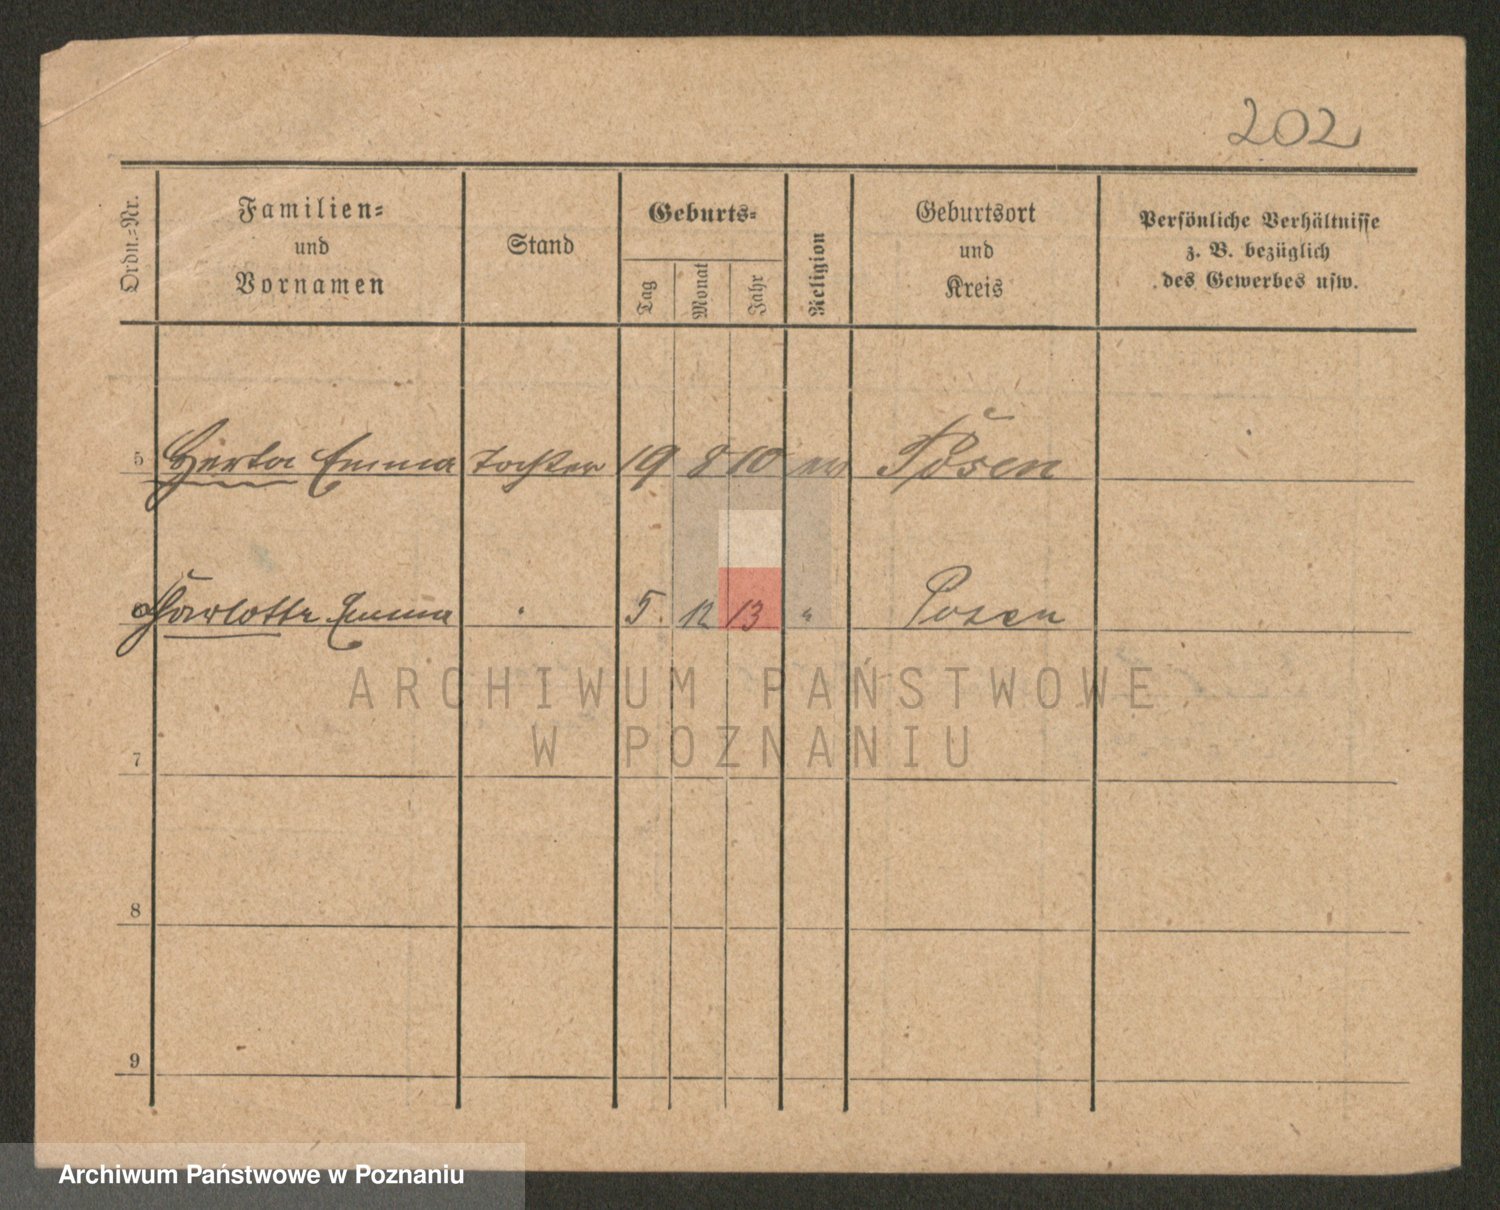 202
Ordn.-Nr.
Familien-
und
Vornamen
Stand
Geburts-
Tag
Monat
Jahr
Religion
Geburtsort
und
Kreis
Persönliche Verhältnisse
z. B. bezüglich
des Gewerbes usw.
5 Herta Emma Tochter 19 8 10 Posen
Charlotte Emma " 5. 12 13 " Posen
ARCHIWUM PAŃSTWOWE
W POZNANIU
7
8
9
Archiwum Państwowe w Poznaniu